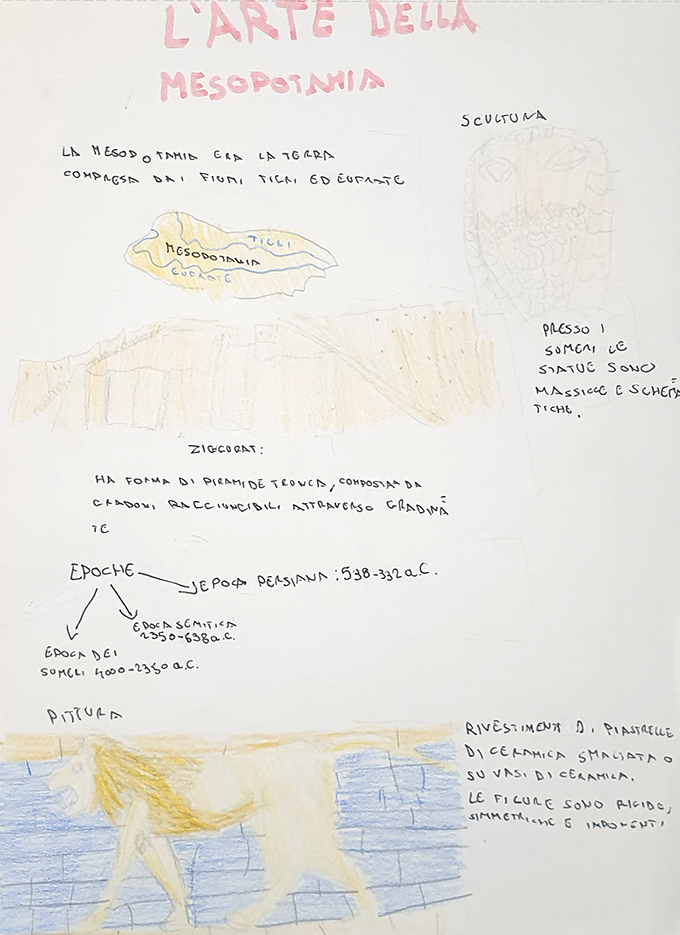 L'ARTE DELLA
MESOPOTAMIA
SCULTURA
LA MESOPOTAMIA ERA LA TERRA
COMPRESA DAI FIUMI TIGRI ED EUFRATE
TIGRI
MESOPOTAMIA
EUFRATE
PRESSO I
SUMERI LE
STATUE SONO
MASSICCE E SCHEMA
TICHE.
ZIGGURAT:
HA FORMA DI PIRAMIDE TRONCA, COMPOSTA DA
GRADONI RAGGIUNGIBILI ATTRAVERSO GRADINA
TE
EPOCHE
EPOCA PERSIANA: 538-332 a.C.
EPOCA SEMITICA
2350-638 a.C.
EPOCA DEI
SUMERI 4000-2350 a.C.
PITTURA
RIVESTIMENTI DI PIASTRELLE
DI CERAMICA SMALTATA O
SU VASI DI CERAMICA.
LE FIGURE SONO RIGIDE,
SIMMETRICHE E IMPONENTI